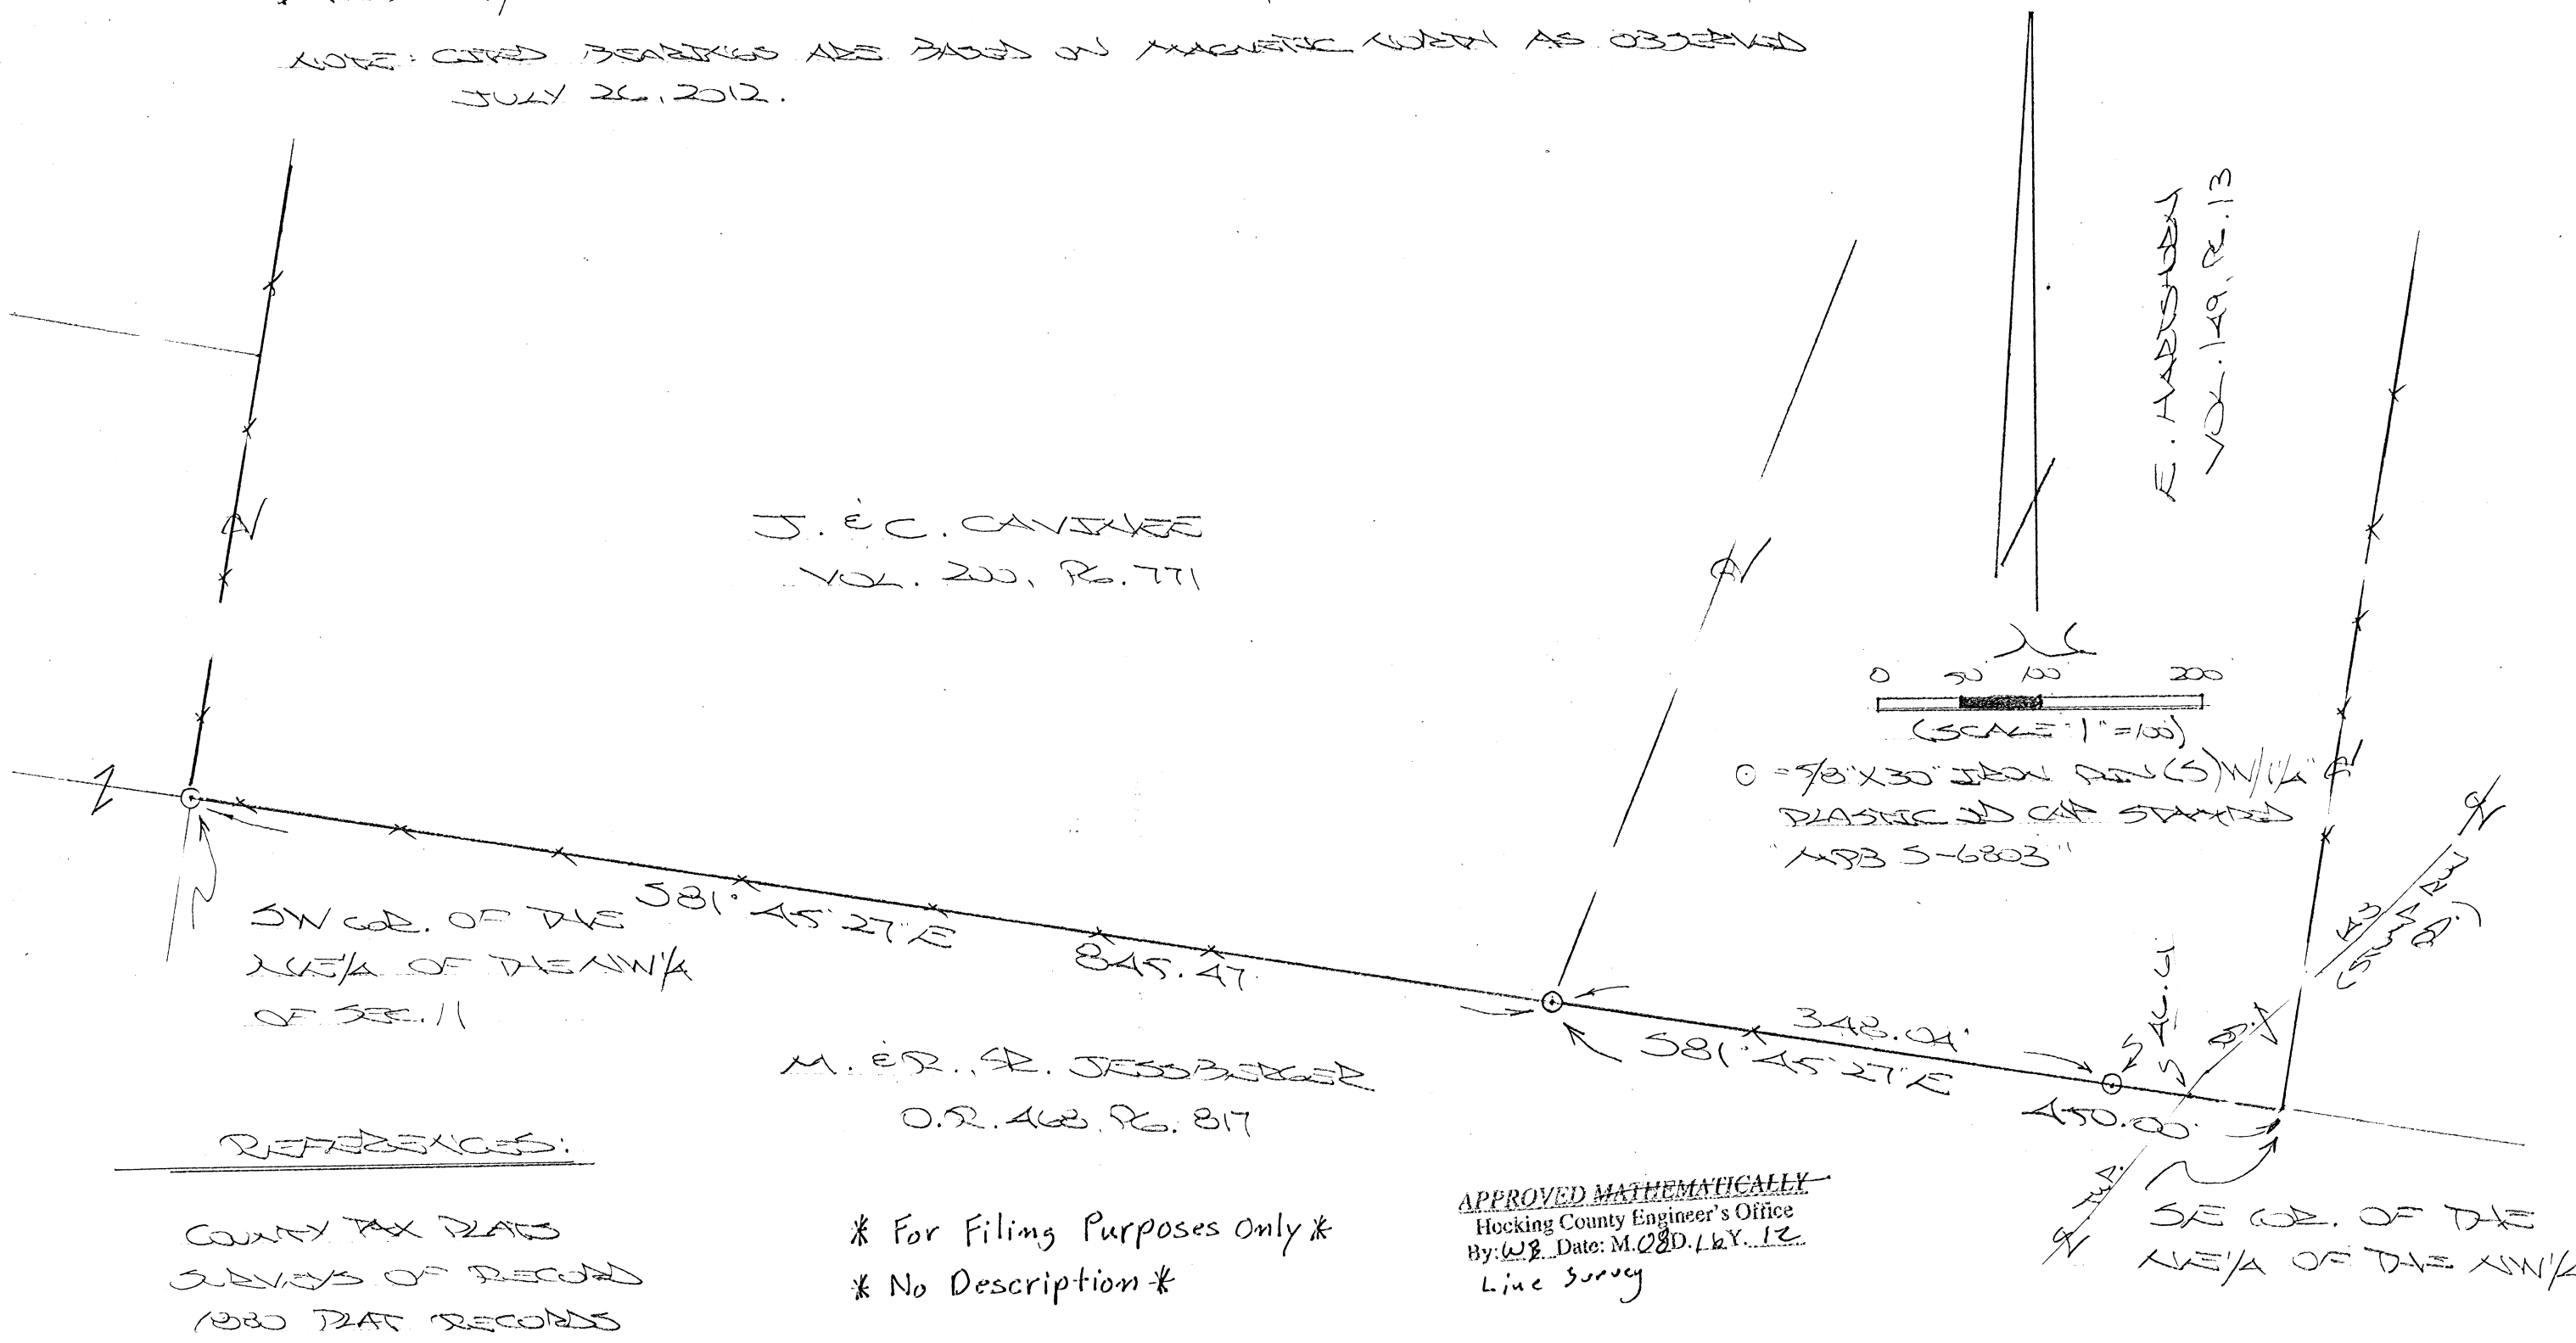 NOTE: CITED BEARINGS ARE BASED ON MAGNETIC NORTH AS OBSERVED
JULY 26, 2012.
E. HARTSHORN
VOL. 149, PG. 13
J. & C. CAVINEE
VOL. 200, PG. 771
0 50 100 200
(SCALE: 1" = 100')
= 5/8" X 30" IRON PIN(S) W/ 1 1/4"
PLASTIC ID CAP STAMPED
"MPB S-6803"
SW COR. OF THE
NE 1/4 OF THE NW 1/4
OF SEC. 11
S81° 45' 27" E
845.47'
348.04'
S81° 45' 27" E
46.61
450.00'
M. & R., SR. JESSBERGER
O.R. 468, PG. 817
REFERENCES:
COUNTY TAX PLATS
SURVEYS OF RECORD
1880 PLAT RECORDS
* For Filing Purposes Only *
* No Description *
APPROVED MATHEMATICALLY
Hocking County Engineer's Office
By: WB Date: M.08D.16Y.12
Line Survey
SE COR. OF THE
NE 1/4 OF THE NW 1/4